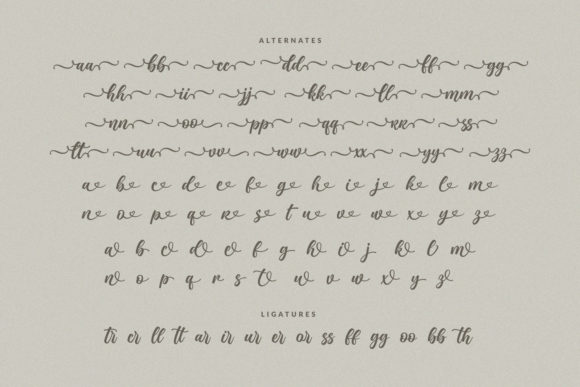 ALTERNATES
aa bb cc dd ee ff gg
hh ii jj kk ll mm
nn oo pp qq rr ss
tt uu vv ww xx yy zz
a b c d e f g h i j k l m
n o p q r s t u v w x y z
a b c d e f g h i j k l m
n o p q r s t u v w x y z
LIGATURES
tr cr ll tt ar ir ur er or ss ff gg oo bb th